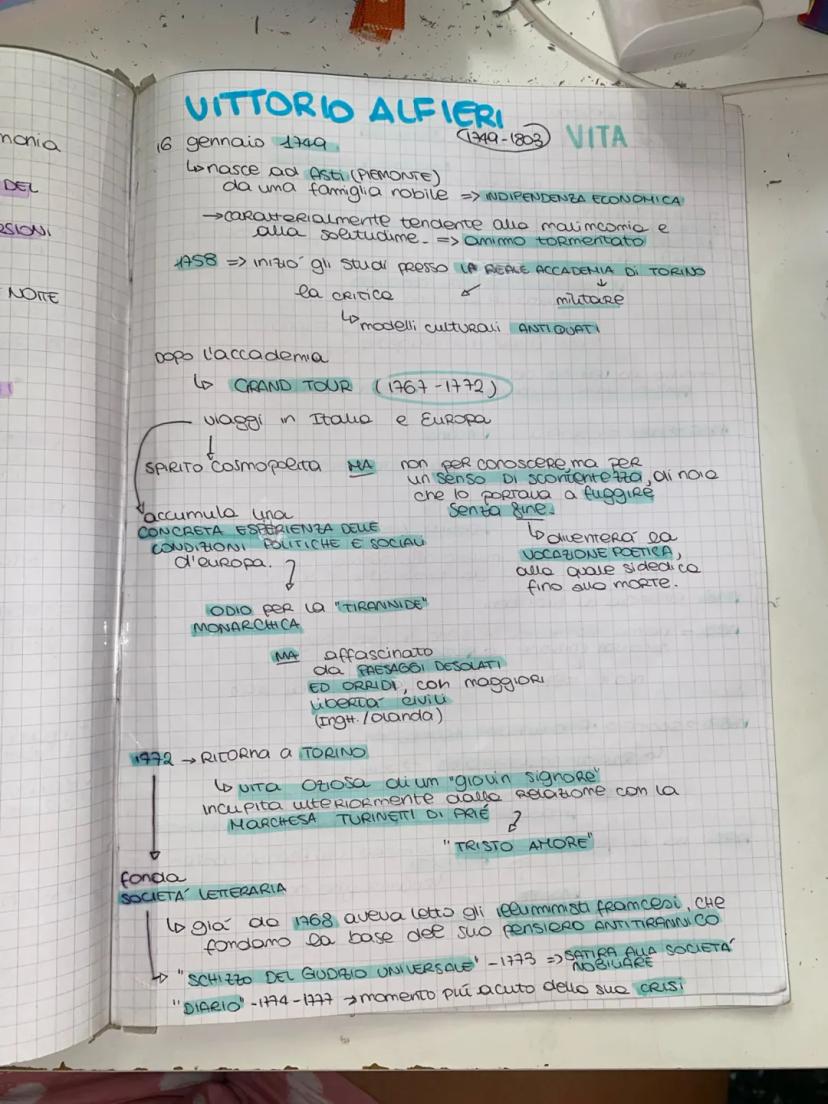 monia
DEL
RSIONI
NOTTE
VITTORIO ALFIERI
(1749-1803) VITA
16 gennaio 1749
↳nasce ad Asti (PIEMONTE)
da una famiglia nobile => INDIPENDENZA ECONOMICA
→caratterialmente tendente alla malinconia e
alla solitudine. => animo tormentato
1758 => iniziò gli studi presso LA REALE ACCADEMIA DI TORINO
la critica ↙ ↓ militare
↳modelli culturali ANTIQUATI
DOPO l'accademia
↳ GRAND TOUR (1767-1772)
viaggi in Italia e EUROPA
↓
SPIRITO COSMOPOLITA MA non per conoscere, ma per
un senso di scontentezza, di noia
che lo portava a fuggire
senza fine.
↳diventerà la
VOCAZIONE POETICA,
alla quale si dedica
fino alla morte.
accumula una
CONCRETA ESPERIENZA DELLE
CONDIZIONI POLITICHE E SOCIALI
d'europa.
ODIO PER LA "TIRANNIDE"
MONARCHICA
MA affascinato
da PAESAGGI DESOLATI
ED ORRIDI, con maggiori
libertà civili
(Inght./olanda)
1772 → RITORNA A TORINO
↳ VITA OZIOSA di un "giovin signore"
incupita ulteriormente dalla relazione con la
MARCHESA TURINETTI DI PRIÉ
"TRISTO AMORE"
fonda
SOCIETÀ LETTERARIA
↳ già da 1768 aveva letto gli illuministi francesi, che
fondano la base del suo PENSIERO ANTITIRANNICO
→ "SCHIZZO DEL GIUDIZIO UNIVERSALE" -1773 => SATIRA ALLA SOCIETÀ
NOBILIARE
"DIARIO" -1774-1777 → momento più acuto della sua CRISI